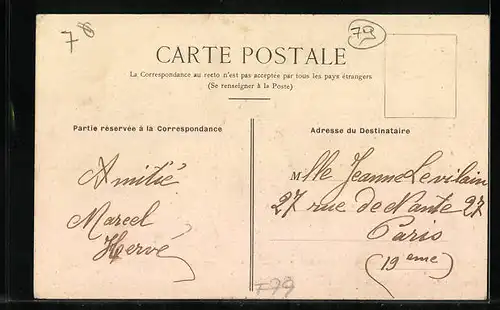 78
79
CARTE POSTALE
La Correspondance au recto n'est pas acceptée par tous les pays étrangers
(Se renseigner à la Poste)
Partie réservée à la Correspondance
Amitié
Marcel
Hervé
Adresse du Destinataire
Mlle Jeanne Levilain
27 rue de Nante 27
Paris
(19eme)
779